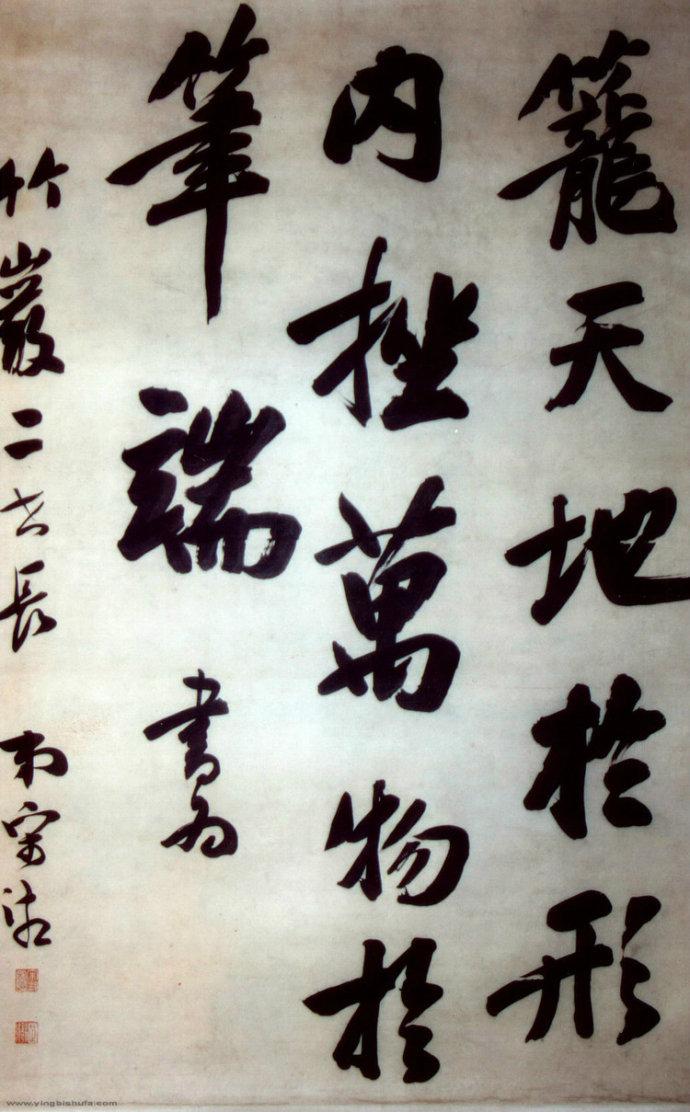 籠天地於形
内挫萬物於
筆端 書為
竹巖二世長 弟宋湘
www.yingbishufa.com